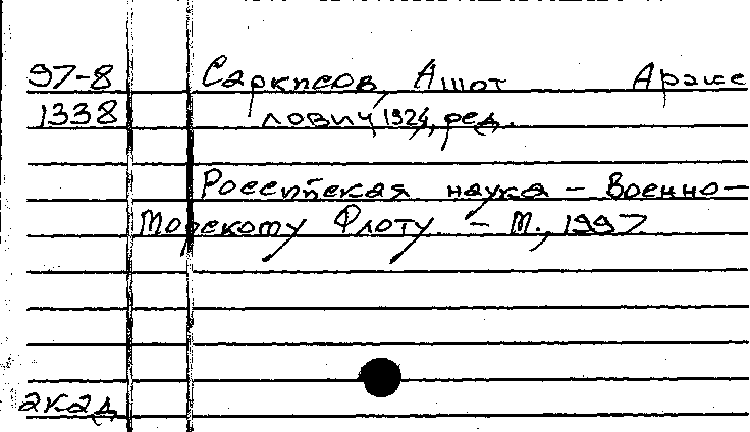 97-8 Саркисов, Ашот Араке
1338 лович, 1924, ред.
Российская наука – Военно-
Морскому Флоту. – М., 1997
акад